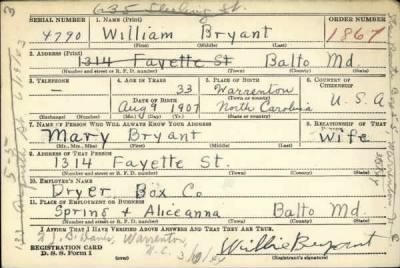 635 Sterling St.
SERIAL NUMBER 1. NAME (Print) ORDER NUMBER
4790 William Bryant 1867
(First) (Middle) (Last)
2. ADDRESS (Print)
1314 Fayette St. Balto Md.
(Number and street or R. F. D. number) (Town) (County) (State)
3. TELEPHONE 4. AGE IN YEARS 5. PLACE OF BIRTH 6. COUNTRY OF CITIZENSHIP
33 Warrenton
DATE OF BIRTH (Town or county)
Aug 9 1907 North Carolina U.S.A
(Exchange) (No.) (Mo.) (Day) (Yr.) (State or country)
7. NAME OF PERSON WHO WILL ALWAYS KNOW YOUR ADDRESS 8. RELATIONSHIP OF THAT PERSON
Mary Bryant Wife
(Mr., Mrs., Miss) (First) (Middle) (Last)
9. ADDRESS OF THAT PERSON
1314 Fayette St.
(Number and street or R. F. D. number) (Town) (County) (State)
10. EMPLOYER'S NAME
Dryer Box Co
11. PLACE OF EMPLOYMENT OR BUSINESS
Spring & Aliceanna Balto Md.
(Number and street or R. F. D. number) (Town) (County) (State)
I AFFIRM THAT I HAVE VERIFIED ABOVE ANSWERS AND THAT THEY ARE TRUE.
Warrenton,
N.C.
REGISTRATION CARD
D. S. S. Form 1 Willie Bryant
(Registrant's signature)